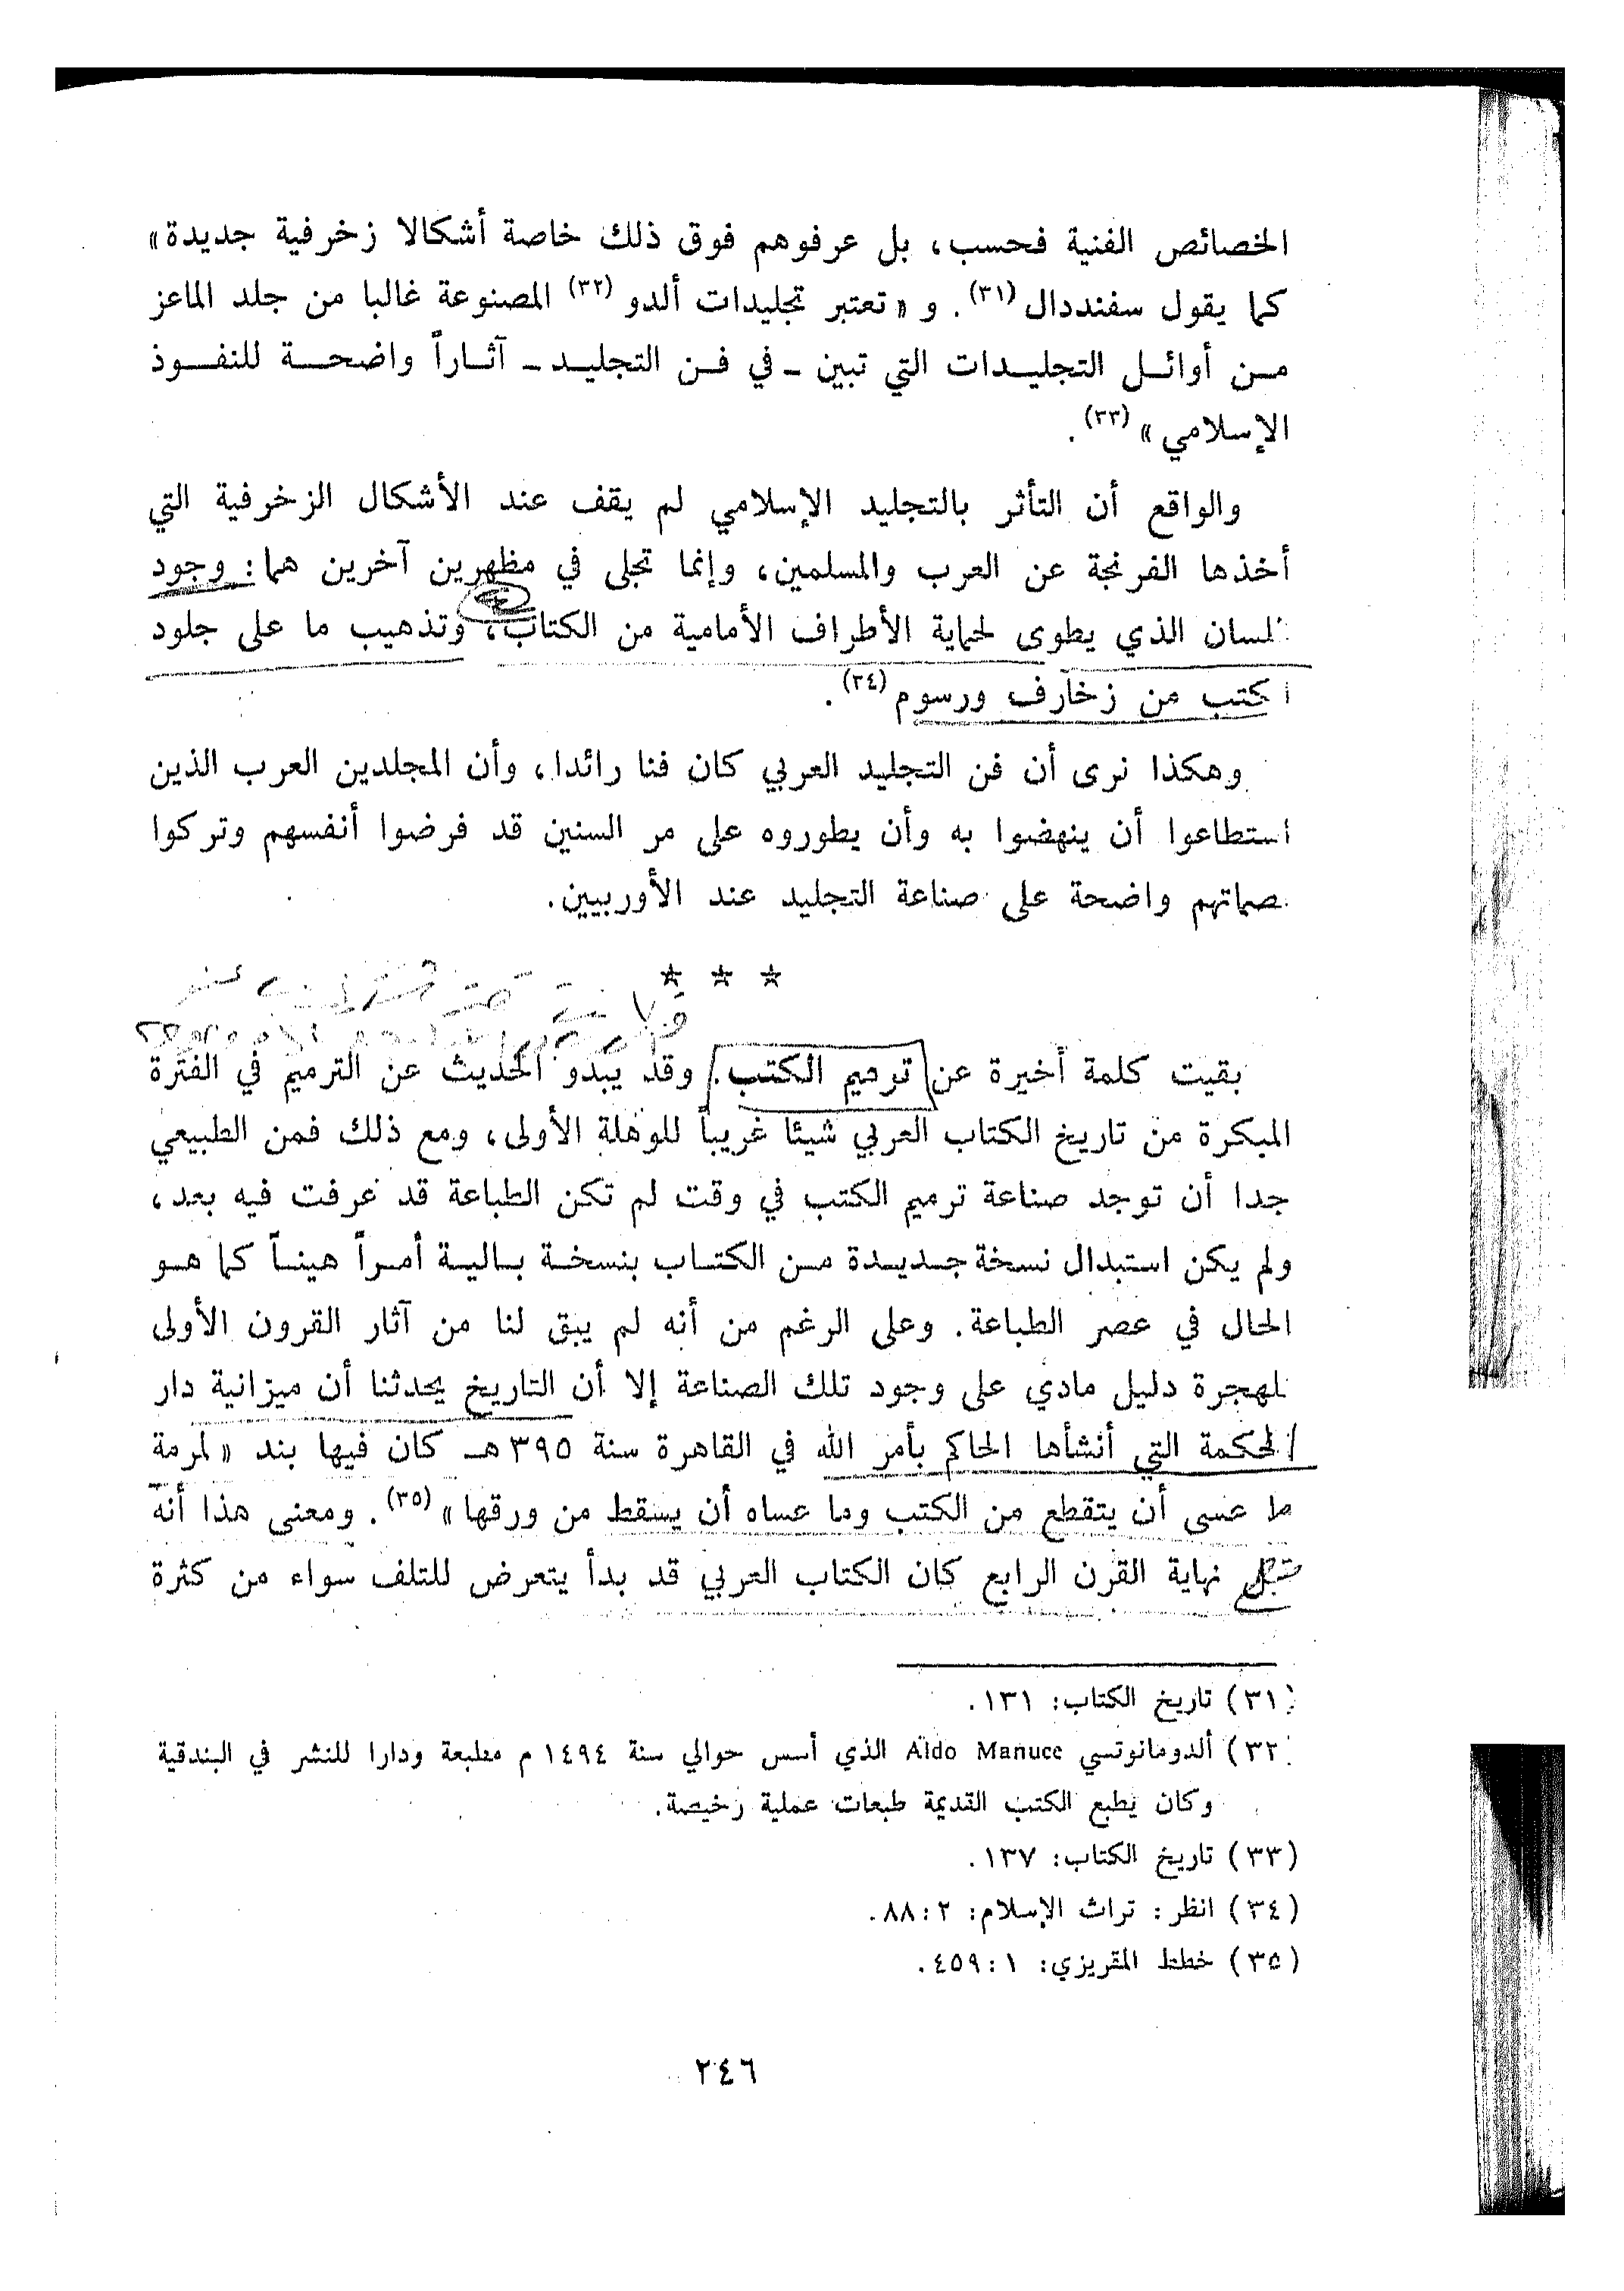 الخصائص الفنية فحسب، بل عرفوهم فوق ذلك خاصة أشكالا زخرفية جديدة»
كما يقول سفنددال (٣١). و «تعتبر تجليدات ألدو (٣٢) المصنوعة غالبا من جلد الماعز
من أوائل التجليدات التي تبين ـ في فن التجليد ـ آثاراً واضحة للنفوذ
الإسلامي» (٣٣).
والواقع أن التأثر بالتجليد الإسلامي لم يقف عند الأشكال الزخرفية التي
أخذها الفرنجة عن العرب والمسلمين، وإنما تجلى في مظهرين آخرين هما: وجود
اللسان الذي يطوى لحماية الأطراف الأمامية من الكتاب، وتذهيب ما على جلود
الكتب من زخارف ورسوم (٣٤).
وهكذا نرى أن فن التجليد العربي كان فنا رائدا، وأن المجلدين العرب الذين
استطاعوا أن ينهضوا به وأن يطوروه على مر السنين قد فرضوا أنفسهم وتركوا
بصماتهم واضحة على صناعة التجليد عند الأوربيين.
☆ ☆ ☆
بقيت كلمة أخيرة عن ترميم الكتب. وقد يبدو الحديث عن الترميم في الفترة
المبكرة من تاريخ الكتاب العربي شيئا غريباً للوهلة الأولى، ومع ذلك فمن الطبيعي
جدا أن توجد صناعة ترميم الكتب في وقت لم تكن الطباعة قد عرفت فيه بعد،
ولم يكن استبدال نسخة جديدة من الكتاب بنسخة بالية أمراً هيناً كما هو
الحال في عصر الطباعة. وعلى الرغم من أنه لم يبق لنا من آثار القرون الأولى
للهجرة دليل مادي على وجود تلك الصناعة إلا أن التاريخ يحدثنا أن ميزانية دار
الحكمة التي أنشأها الحاكم بأمر الله في القاهرة سنة ٣٩٥ هـ كان فيها بند «لمرمة
ما عسى أن يتقطع من الكتب وما عساه أن يسقط من ورقها» (٣٥). ومعنى هذا أنه
قبل نهاية القرن الرابع كان الكتاب العربي قد بدأ يتعرض للتلف سواء من كثرة
(٣١) تاريخ الكتاب: ١٣١.
(٣٢) ألدومانوتسي Aldo Manuce الذي أسس حوالي سنة ١٤٩٤ م مطبعة ودارا للنشر في البندقية
وكان يطبع الكتب القديمة طبعات عملية رخيصة.
(٣٣) تاريخ الكتاب: ١٣٧.
(٣٤) انظر: تراث الإسلام: ٢ : ٨٨.
(٣٥) خطط المقريزي: ١ : ٤٥٩.
٢٤٦